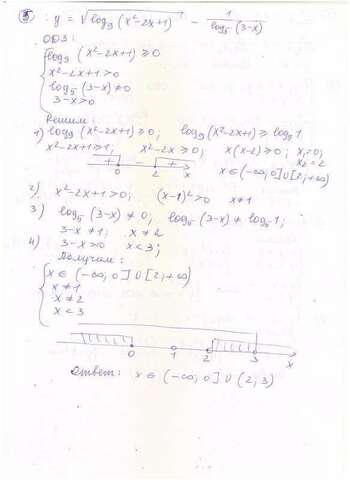 8) : y = √(log₉(x²-2x+1)) - 1/log₅(3-x)
ОДЗ:
{ log₉(x²-2x+1) ≥ 0
x²-2x+1>0
log₅(3-x) ≠ 0
3-x>0
Решим
1) log₉(x²-2x+1) ≥ 0; log₉(x²-2x+1) ≥ log₉1
x²-2x+1 ≥ 1; x²-2x ≥ 0; x(x-2) ≥ 0; x₁=0; x₂=2
+ - +
0 2 x
x ∈ (-∞; 0] ∪ [2; +∞)
2) x²-2x+1>0; (x-1)²>0 x≠1
3) log₅(3-x) ≠ 0; log₅(3-x) ≠ log₅1;
3-x ≠ 1; x ≠ 2
4) 3-x>0 x<3;
Получаем:
{ x ∈ (-∞; 0] ∪ [2; +∞)
x ≠ 1
x ≠ 2
x < 3
0 1 2 3 x
Ответ: x ∈ (-∞; 0] ∪ (2; 3)